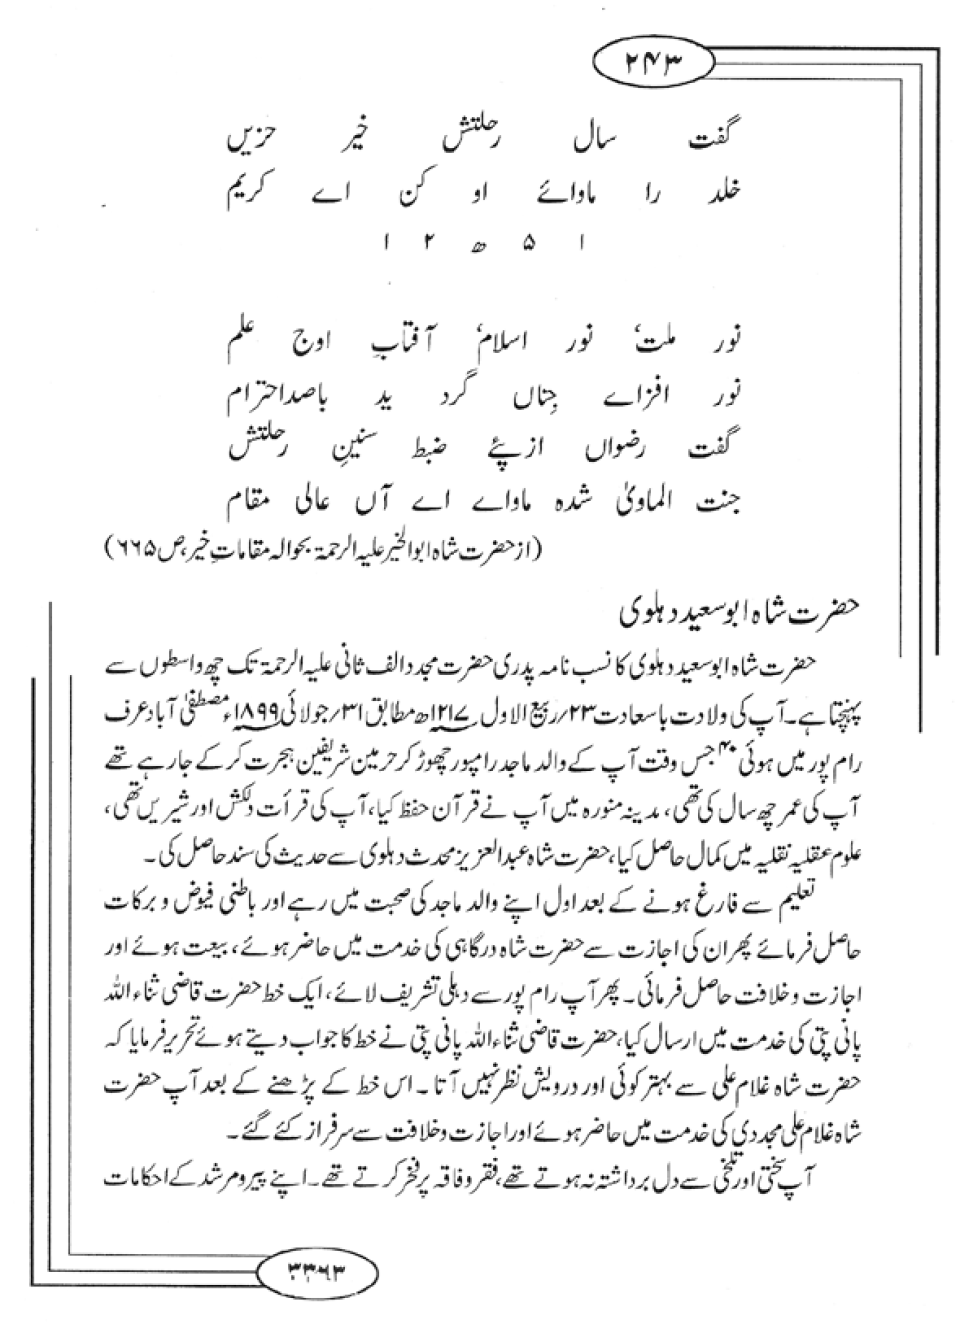 ۲۴۳
گفت سال رحلتش خیر حزیں
خلد را ماوائے او کن اے کریم
ا ۵ ھ ۲ ا
نور ملت، نور اسلام، آفتابِ اوج علم
نور افزاے جِناں گرد ید باصداحترام
گفت رضواں ازپئے ضبط سنینِ رحلتش
جنت الماویٰ شدہ ماواے اے آں عالی مقام
(از حضرت شاہ ابوالخیر علیہ الرحمۃ بحوالہ مقاماتِ خیر، ص ۶۶۵)
حضرت شاہ ابوسعید دہلوی
حضرت شاہ ابوسعید دہلوی کا نسب نامہ پدری حضرت مجدد الف ثانی علیہ الرحمۃ تک چھ واسطوں سے
پہنچتا ہے۔ آپ کی ولادت باسعادت ۲۳/ ربیع الاول ۱۲۱۷ھ مطابق ۳۱/ جولائی ۱۸۹۹ء مصطفیٰ آباد عرف
رام پور میں ہوئی ۴۰ جس وقت آپ کے والد ماجد رامپور چھوڑ کر حرمین شریفین ہجرت کر کے جارہے تھے
آپ کی عمر چھ سال کی تھی، مدینہ منورہ میں آپ نے قرآن حفظ کیا، آپ کی قرأت دلکش اور شیریں تھی،
علوم عقلیہ نقلیہ میں کمال حاصل کیا، حضرت شاہ عبدالعزیز محدث دہلوی سے حدیث کی سند حاصل کی۔
تعلیم سے فارغ ہونے کے بعد اول اپنے والد ماجد کی صحبت میں رہے اور باطنی فیوض و برکات
حاصل فرمائے پھر ان کی اجازت سے حضرت شاہ درگاہی کی خدمت میں حاضر ہوئے، بیعت ہوئے اور
اجازت و خلافت حاصل فرمائی۔ پھر آپ رام پور سے دہلی تشریف لائے، ایک خط حضرت قاضی ثناء اللہ
پانی پتی کی خدمت میں ارسال کیا، حضرت قاضی ثناء اللہ پانی پتی نے خط کا جواب دیتے ہوئے تحریر فرمایا کہ
حضرت شاہ غلام علی سے بہتر کوئی اور درویش نظر نہیں آتا۔ اس خط کے پڑھنے کے بعد آپ حضرت
شاہ غلام علی مجددی کی خدمت میں حاضر ہوئے اور اجازت و خلافت سے سرفراز کئے گئے۔
آپ سختی اور تلخی سے دل برداشتہ نہ ہوتے تھے، فقر و فاقہ پر فخر کرتے تھے۔ اپنے پیر و مرشد کے احکامات